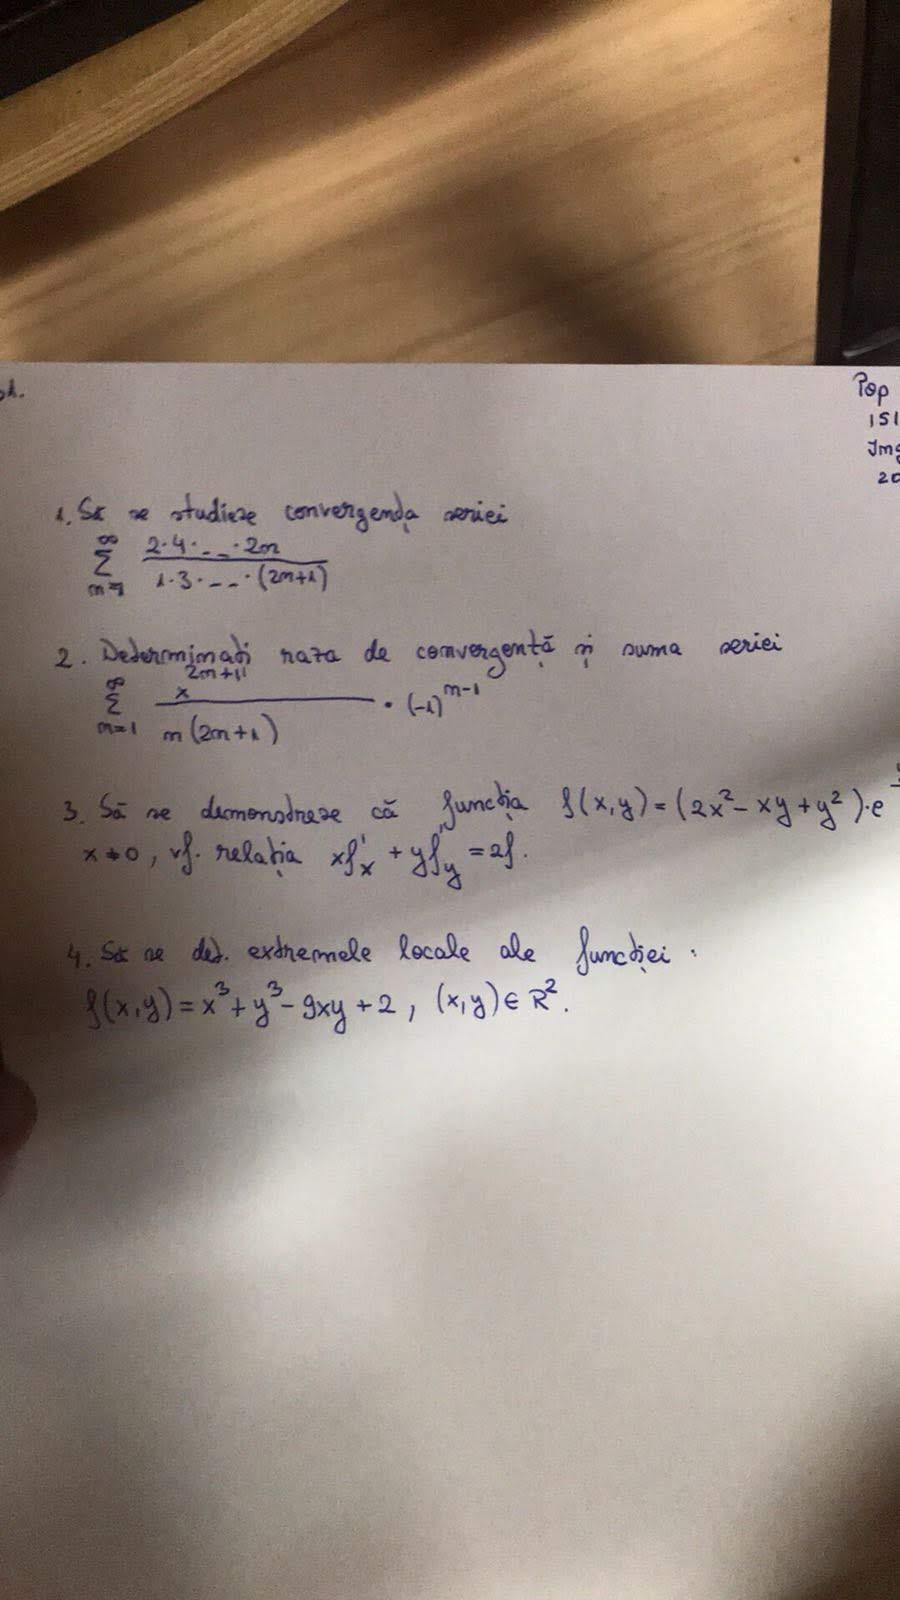 Pop
151
1. Să se studieze convergența seriei
∞ Σ n=1 2·4·...·2n / 1·3·...·(2n+1)
2. Determinați raza de convergență și suma seriei
∞ Σ n=1 x^(2n+1) / n(2n+1) · (-1)^(n-1)
3. Să se demonstreze că funcția f(x,y)=(2x²-xy+y²)·e
x≠0, vf. relația xf'x + yf'y = 2f.
4. Să se det. extremele locale ale funcției:
f(x,y)=x³+y³-9xy+2, (x,y)∈R².